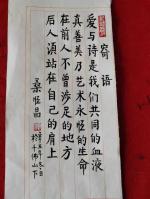 寄语
爱与诗是我们共同的血液
真善美乃艺术永恒的生命
在前人不曾涉足的地方
后人湏站在自己的肩上
桑恒昌
於千佛山下